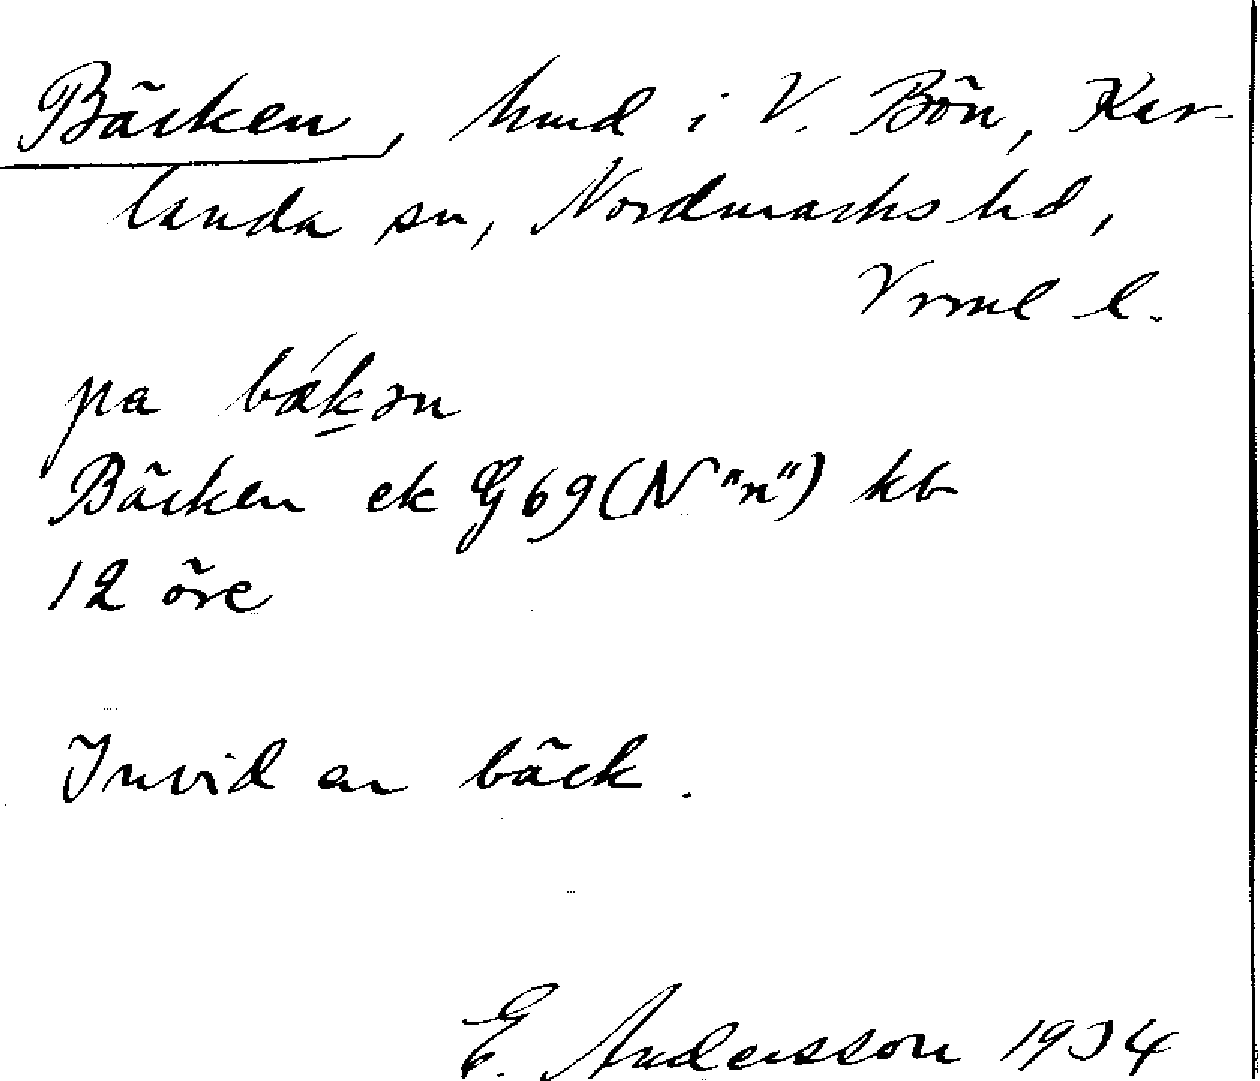 Bäcken, hmd i V. Bön, Kar-
landa sn, Nordmarks hd,
Vrml l.
pa bákən
Bäcken ek G69(N "n") kb
12 öre
Invid en bäck.
E. Andersson 1934